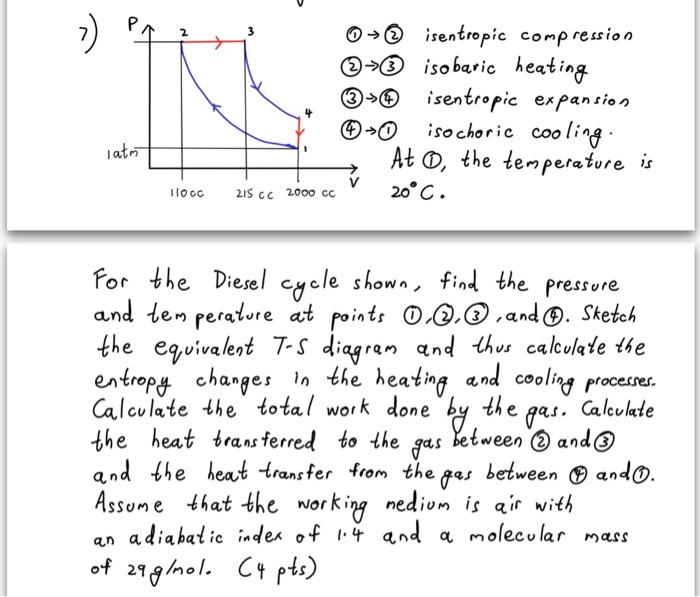 7)
P
2
3
4
1
1 atm
V
110 cc
215 cc
2000 cc
①→② isentropic compression
②→③ isobaric heating
③→④ isentropic expansion
④→① isochoric cooling.
At ①, the temperature is
20°C.
For the Diesel cycle shown, find the pressure
and temperature at points ①,②,③,and④. Sketch
the equivalent T-S diagram and thus calculate the
entropy changes in the heating and cooling processes.
Calculate the total work done by the gas. Calculate
the heat transferred to the gas between ② and ③
and the heat transfer from the gas between ④ and ①.
Assume that the working medium is air with
an adiabatic index of 1.4 and a molecular mass
of 29 g/mol. (4 pts)